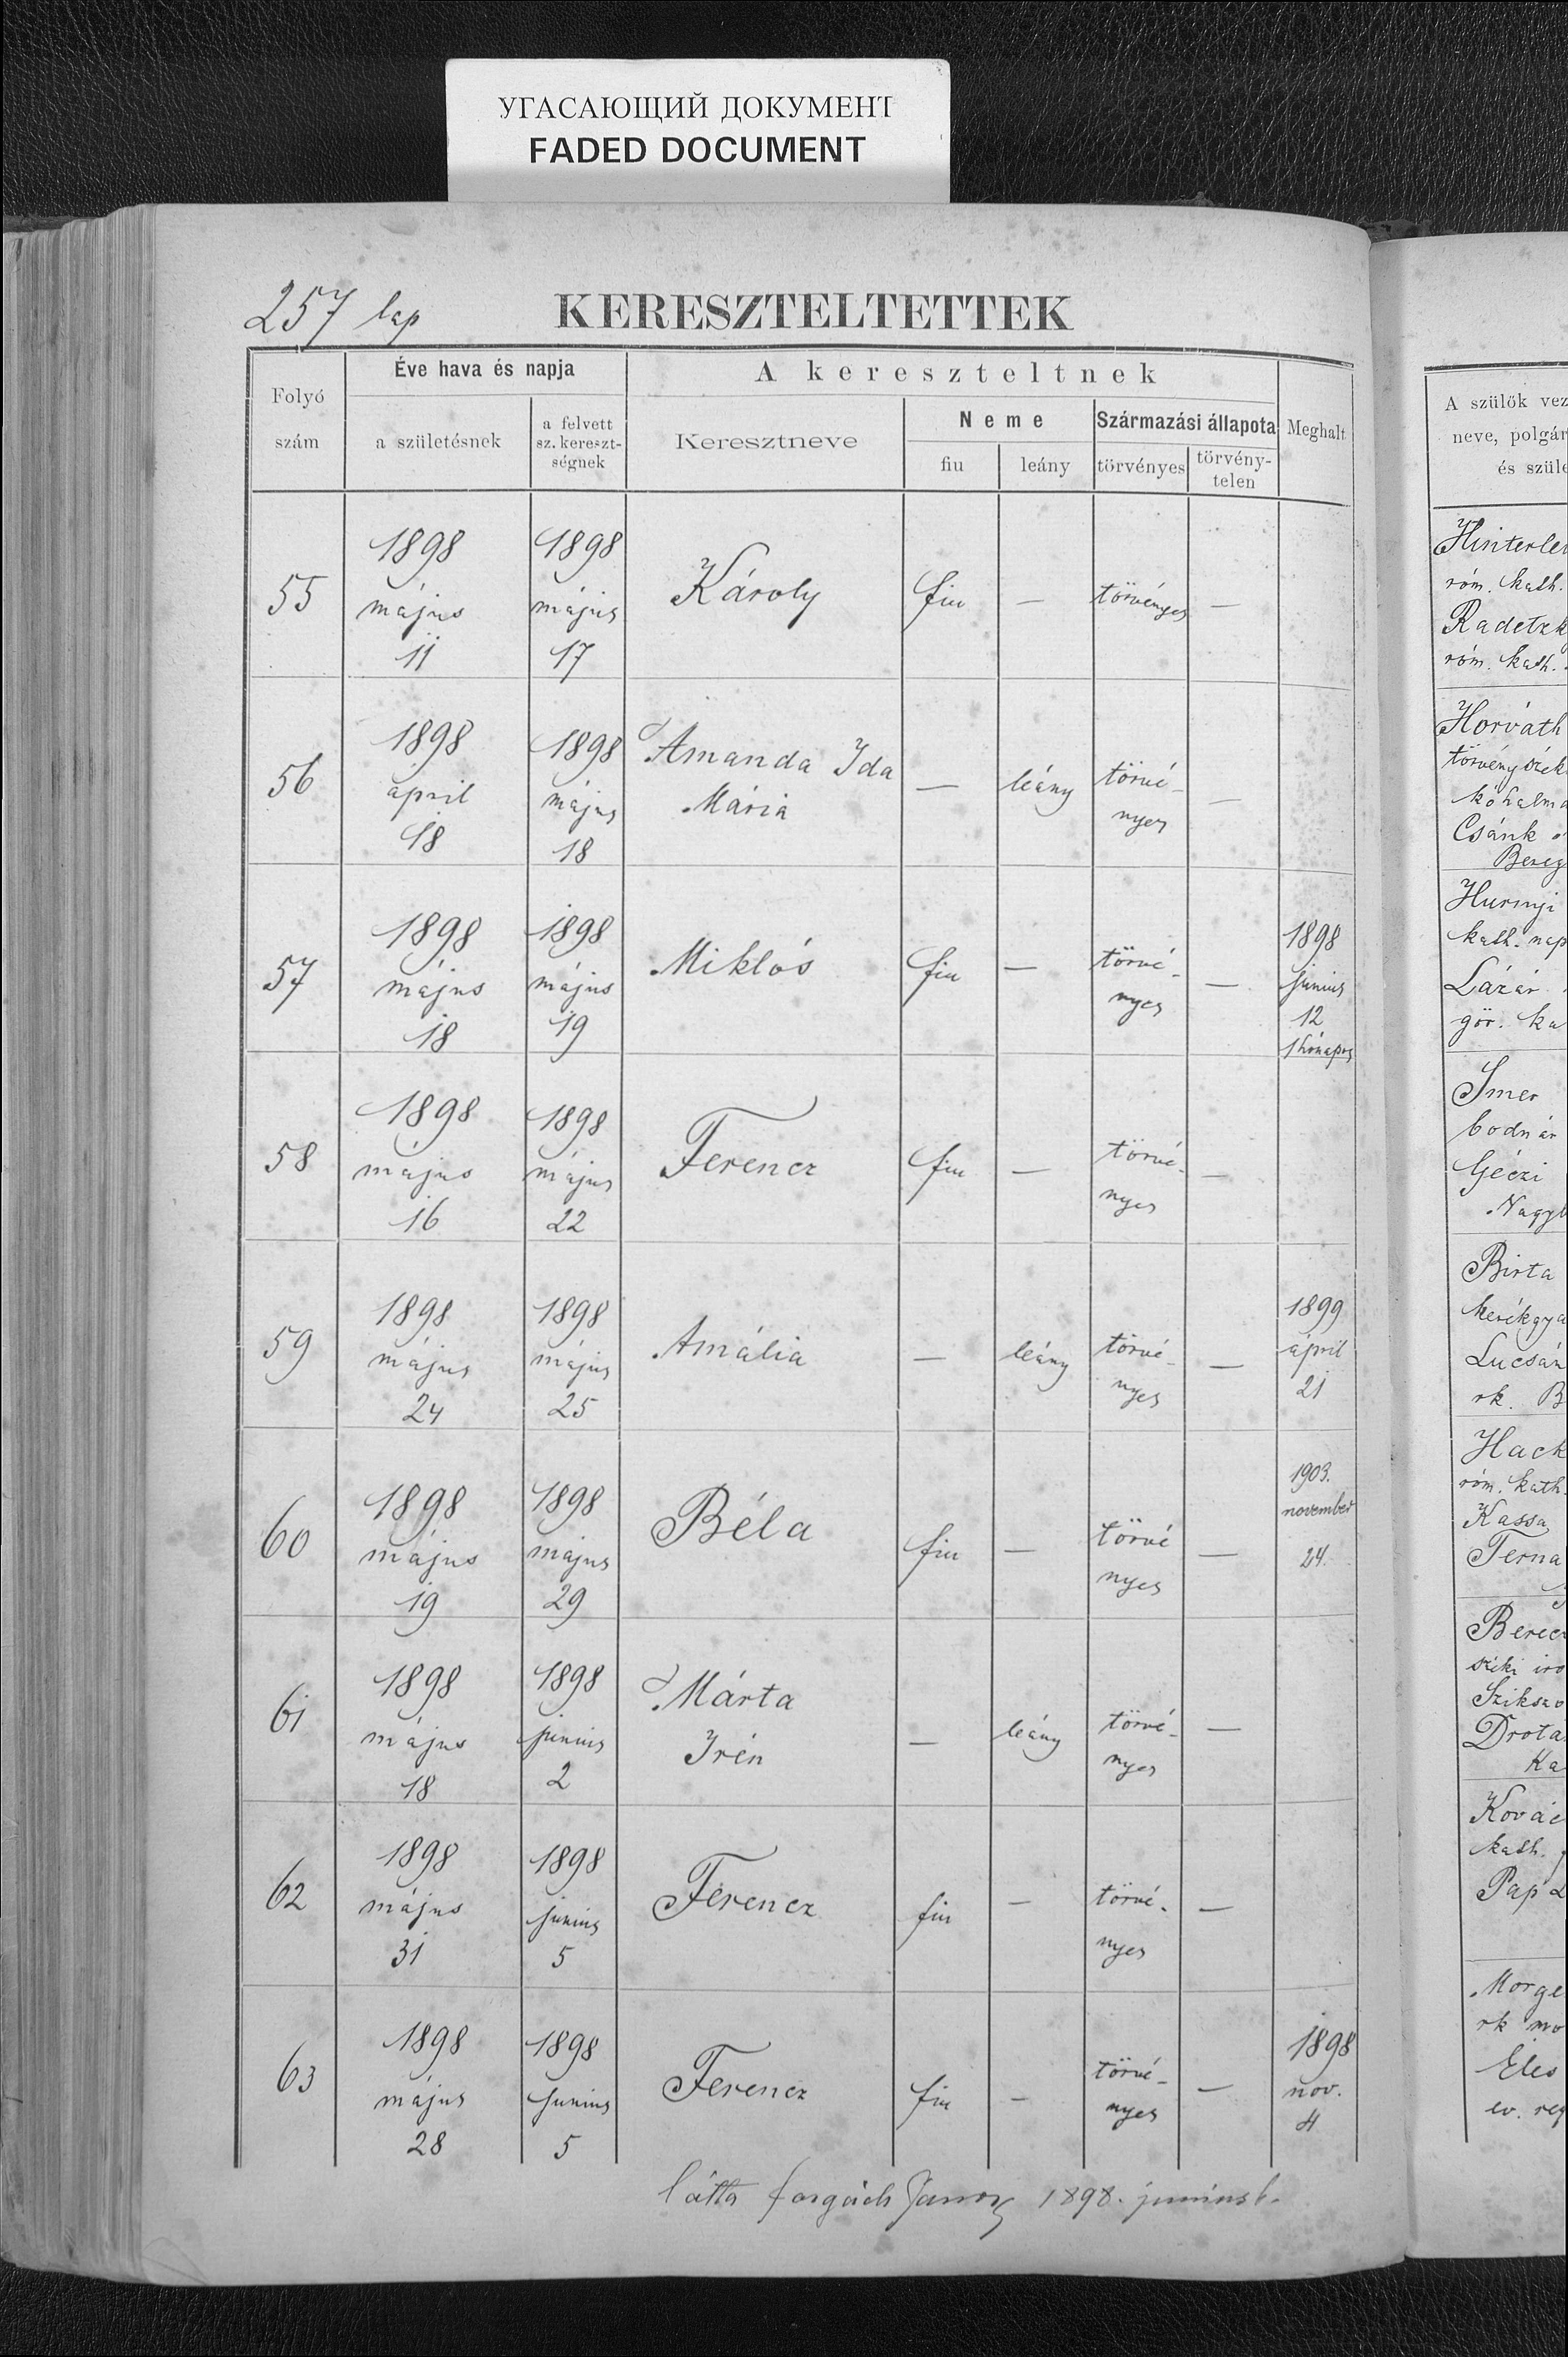 УГАСАЮЩИЙ ДОКУМЕНТ
FADED DOCUMENT
257 lap
KERESZTELTETTEK
Folyó szám
Éve hava és napja
a születésnek
a felvett sz. kereszt-ségnek
A kereszteltnek
Keresztneve
Neme
fiu
leány
Származási állapota
törvényes
törvény-telen
Meghalt
55
1898 május 11
1898 május 17
Károly
fiu
—
törvényes
—
56
1898 april 18
1898 május 18
Amanda Ida
Mária
—
leány
törvé-
nyes
—
57
1898 május 18
1898 május 19
Miklós
fiu
—
törvé-
nyes
—
1898
junius
12
1 hónapos
58
1898 május 16
1898 május 22
Ferencz
fiu
—
törvé-
nyes
—
59
1898 május 24
1898 május 25
Amália
—
leány
törvé-
nyes
—
1899
ápril
21
60
1898 május 19
1898 május 29
Béla
fiu
—
törvé
nyes
—
1903.
november
24.
61
1898 május 18
1898 junius 2
Márta
Irén
—
leány
törvé-
nyes
—
62
1898 május 31
1898 junius 5
Ferencz
fiu
—
törvé-
nyes
—
63
1898 május 28
1898 junius 5
Ferencz
fiu
—
törvé-
nyes
—
1898
nov.
4
látta Forgách János 1898. junius
A szülők vez
neve, polgár
és szüle
Hinterle
róm. kath.
Radetzk
róm. kath.
Horváth
törvényszék
kőhalm
Csánk
Bereg
Hurnyi
kath. nap
Lázár
gör. ka
Imer
bodnár
Géczi
Nagy
Birta
kerékgya
Lucsán
rk. B
Hack
róm. kath.
Kassa
Terna
Berec
széki iro
Sziksz
Drota
Ka
Kovác
kath.
Pap
Morge
rk mo
Éles
ev. ref